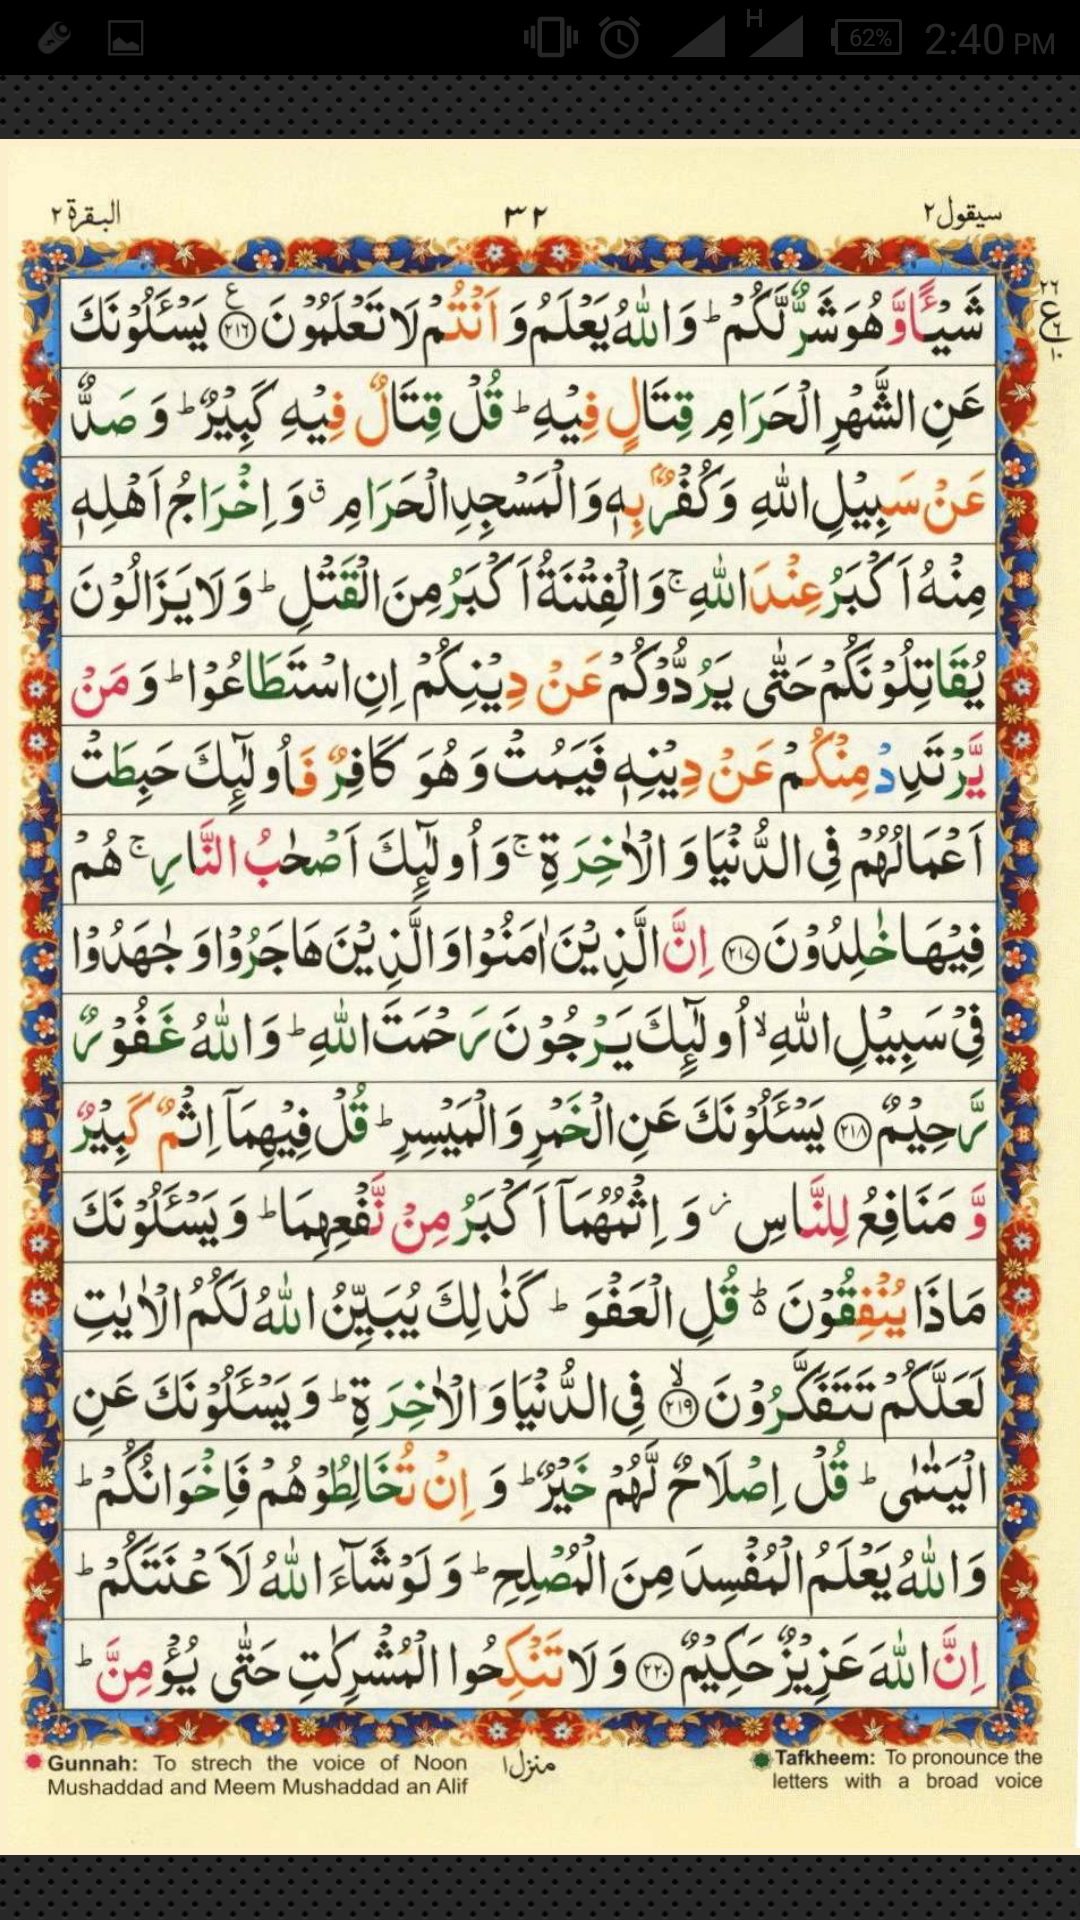 62% 2:40 PM
H
سيقول٢ ٣٢ البقرة٢
شَيْـًٔا وَّهُوَ شَرٌّ لَّكُمْ ؕ وَاللّٰهُ يَعْلَمُ وَ اَنْتُمْ لَا تَعْلَمُوْنَ ﴿۲۱۶﴾ يَسْـَٔلُوْنَكَ
عَنِ الشَّهْرِ الْحَرَامِ قِتَالٍ فِيْهِ ؕ قُلْ قِتَالٌ فِيْهِ كَبِيْرٌ ؕ وَ صَدٌّ
عَنْ سَبِيْلِ اللّٰهِ وَكُفْرٌۢ بِهٖ وَالْمَسْجِدِ الْحَرَامِ ۗ وَ اِخْرَاجُ اَهْلِهٖ
مِنْهُ اَكْبَرُ عِنْدَ اللّٰهِ ۚ وَالْفِتْنَةُ اَكْبَرُ مِنَ الْقَتْلِ ؕ وَلَا يَزَالُوْنَ
يُقَاتِلُوْنَكُمْ حَتّٰى يَرُدُّوْكُمْ عَنْ دِيْنِكُمْ اِنِ اسْتَطَاعُوْا ؕ وَ مَنْ
يَّرْتَدِدْ مِنْكُمْ عَنْ دِيْنِهٖ فَيَمُتْ وَهُوَ كَافِرٌ فَاُولٰٓئِكَ حَبِطَتْ
اَعْمَالُهُمْ فِى الدُّنْيَا وَ الْاٰخِرَةِ ۚ وَ اُولٰٓئِكَ اَصْحٰبُ النَّارِ ۚ هُمْ
فِيْهَا خٰلِدُوْنَ ﴿۲۱۷﴾ اِنَّ الَّذِيْنَ اٰمَنُوْا وَالَّذِيْنَ هَاجَرُوْا وَ جٰهَدُوْا
فِىْ سَبِيْلِ اللّٰهِ ۙ اُولٰٓئِكَ يَرْجُوْنَ رَحْمَتَ اللّٰهِ ؕ وَاللّٰهُ غَفُوْرٌ
رَّحِيْمٌ ﴿۲۱۸﴾ يَسْـَٔلُوْنَكَ عَنِ الْخَمْرِ وَالْمَيْسِرِ ؕ قُلْ فِيْهِمَآ اِثْمٌ كَبِيْرٌ
وَّ مَنَافِعُ لِلنَّاسِ ؗ وَ اِثْمُهُمَآ اَكْبَرُ مِنْ نَّفْعِهِمَا ؕ وَيَسْـَٔلُوْنَكَ
مَاذَا يُنْفِقُوْنَ ؕ۬ قُلِ الْعَفْوَ ؕ كَذٰلِكَ يُبَيِّنُ اللّٰهُ لَكُمُ الْاٰيٰتِ
لَعَلَّكُمْ تَتَفَكَّرُوْنَ ﴿۲۱۹﴾ۙ فِى الدُّنْيَا وَ الْاٰخِرَةِ ؕ وَيَسْـَٔلُوْنَكَ عَنِ
الْيَتٰمٰى ؕ قُلْ اِصْلَاحٌ لَّهُمْ خَيْرٌ ؕ وَ اِنْ تُخَالِطُوْهُمْ فَاِخْوَانُكُمْ ؕ
وَاللّٰهُ يَعْلَمُ الْمُفْسِدَ مِنَ الْمُصْلِحِ ؕ وَ لَوْ شَآءَ اللّٰهُ لَاَعْنَتَكُمْ ؕ
اِنَّ اللّٰهَ عَزِيْزٌ حَكِيْمٌ ﴿۲۲۰﴾ وَ لَا تَنْكِحُوا الْمُشْرِكٰتِ حَتّٰى يُؤْمِنَّ ؕ
۲٦
ع
٦
١٠
Gunnah: To strech the voice of Noon
Mushaddad and Meem Mushaddad an Alif
منزل۱
Tafkheem: To pronounce the
letters with a broad voice